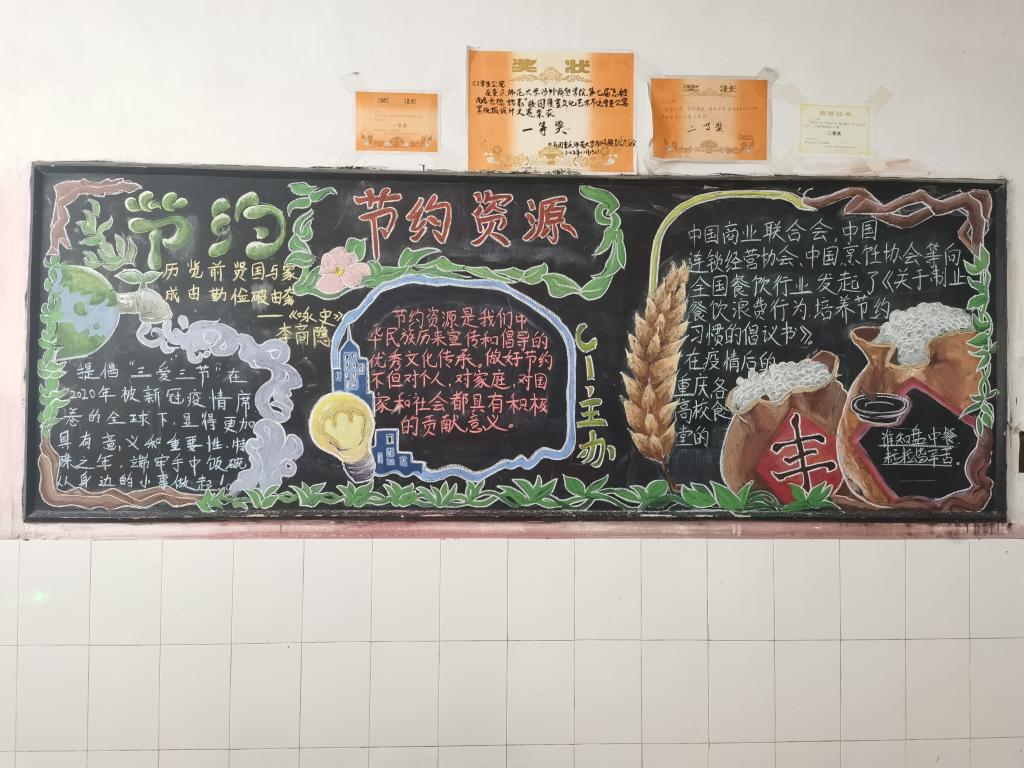 奖 状
一等奖
奖 状
C1学生公寓
一等奖
奖 状
二等奖
荣誉证书
二等奖
节约
历览前贤国与家
成由勤俭破由奢
——《咏史》
李商隐
提倡“三爱三节”在
2020年被新冠疫情席
卷的全球下,显得更加
具有意义和重要性,特
殊之年,端牢手中饭碗
从身边的小事做起!
节约资源
节约资源是我们中
华民族历来宣传和倡导的
优秀文化传承。做好节约
不但对个人,对家庭,对国
家和社会都具有积极
的贡献意义。
C-1主办
中国商业联合会、中国
连锁经营协会、中国烹饪协会等向
全国餐饮行业发起了《关于制止
餐饮浪费行为培养节约
习惯的倡议书》。
在疫情后的
重庆各
高校食
堂的
丰
谁知盘中餐
粒粒皆辛苦。